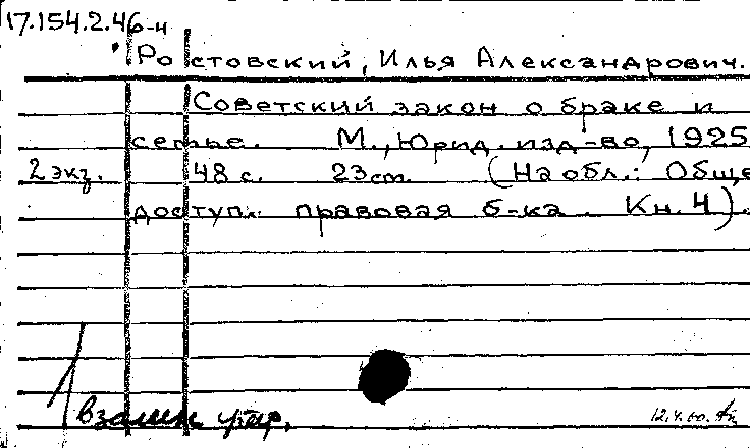 17.154.2.46-4
Ростовский, Илья Александрович.
Советский закон о браке и
семье. М., Юрид. изд-во, 1925
2 экз. 48 с. 23 cm. (На обл.: Обще
доступ. правовая б-ка. Кн. 4).
взамен утр.